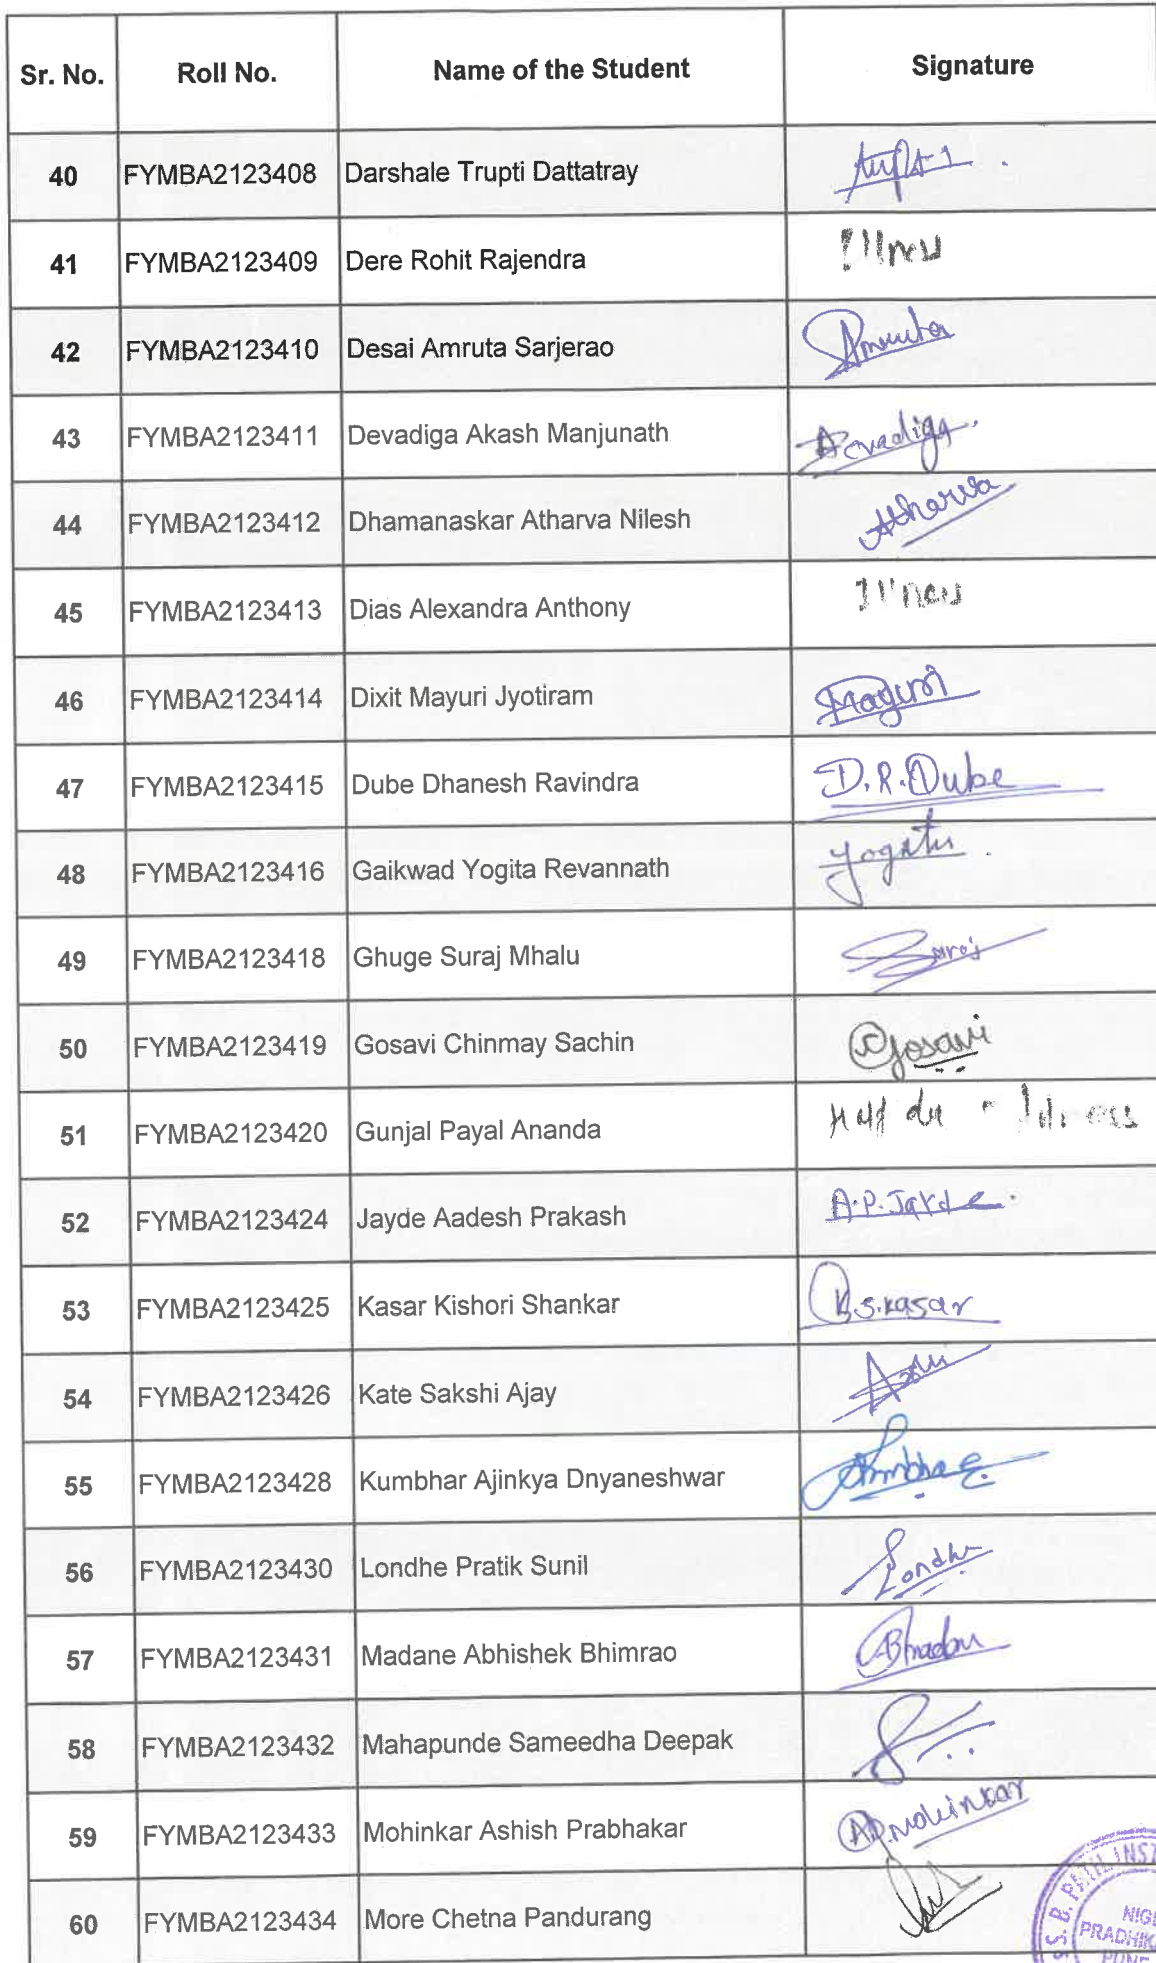 Sr. No. Roll No. Name of the Student Signature
40 FYMBA2123408 Darshale Trupti Dattatray
41 FYMBA2123409 Dere Rohit Rajendra
42 FYMBA2123410 Desai Amruta Sarjerao Amruta
43 FYMBA2123411 Devadiga Akash Manjunath Devadiga
44 FYMBA2123412 Dhamanaskar Atharva Nilesh Atharva
45 FYMBA2123413 Dias Alexandra Anthony
46 FYMBA2123414 Dixit Mayuri Jyotiram Mayuri
47 FYMBA2123415 Dube Dhanesh Ravindra D.R.Dube
48 FYMBA2123416 Gaikwad Yogita Revannath
49 FYMBA2123418 Ghuge Suraj Mhalu
50 FYMBA2123419 Gosavi Chinmay Sachin Gosavi
51 FYMBA2123420 Gunjal Payal Ananda
52 FYMBA2123424 Jayde Aadesh Prakash A.P.Jayde
53 FYMBA2123425 Kasar Kishori Shankar K.S.Kasar
54 FYMBA2123426 Kate Sakshi Ajay
55 FYMBA2123428 Kumbhar Ajinkya Dnyaneshwar
56 FYMBA2123430 Londhe Pratik Sunil Londhe
57 FYMBA2123431 Madane Abhishek Bhimrao
58 FYMBA2123432 Mahapunde Sameedha Deepak
59 FYMBA2123433 Mohinkar Ashish Prabhakar AP.Mohinkar
60 FYMBA2123434 More Chetna Pandurang
S. B. PATIL INST
NIG
PRADHIK